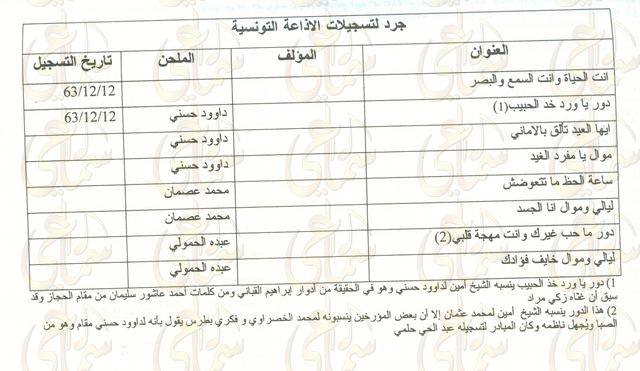 جرد لتسجيلات الاذاعة التونسية
العنوان المؤلف الملحن تاريخ التسجيل
انت الحياة وانت السمع والبصر 63/12/12
دور يا ورد خد الحبيب(1) داوود حسني 63/12/12
ايها العيد تألق بالاماني داوود حسني
موال يا مفرد الغيد داوود حسني
ساعة الحظ ما تتعوضش محمد عصمان
ليالي وموال انا الجسد محمد عصمان
دور ما حب غيرك وانت مهجة قلبي(2) عبده الحمولي
ليالي وموال خايف فؤادك عبده الحمولي
1) دور يا ورد خد الحبيب ينسبه الشيخ أمين لداوود حسني وهو في الحقيقة من أدوار إبراهيم القباني ومن كلمات أحمد عاشور سليمان من مقام الحجاز وقد
سبق أن غناه زكي مراد
2) هذا الدور ينسبه الشيخ أمين لمحمد عثمان إلا أن بعض المؤرخين ينسبونه لمحمد الخضراوي و فكري بطرس يقول بأنه لداوود حسني مقام وهو من
الصبا ويُجهل ناظمه وكان المبادر لتسجيله عبد الحي حلمي